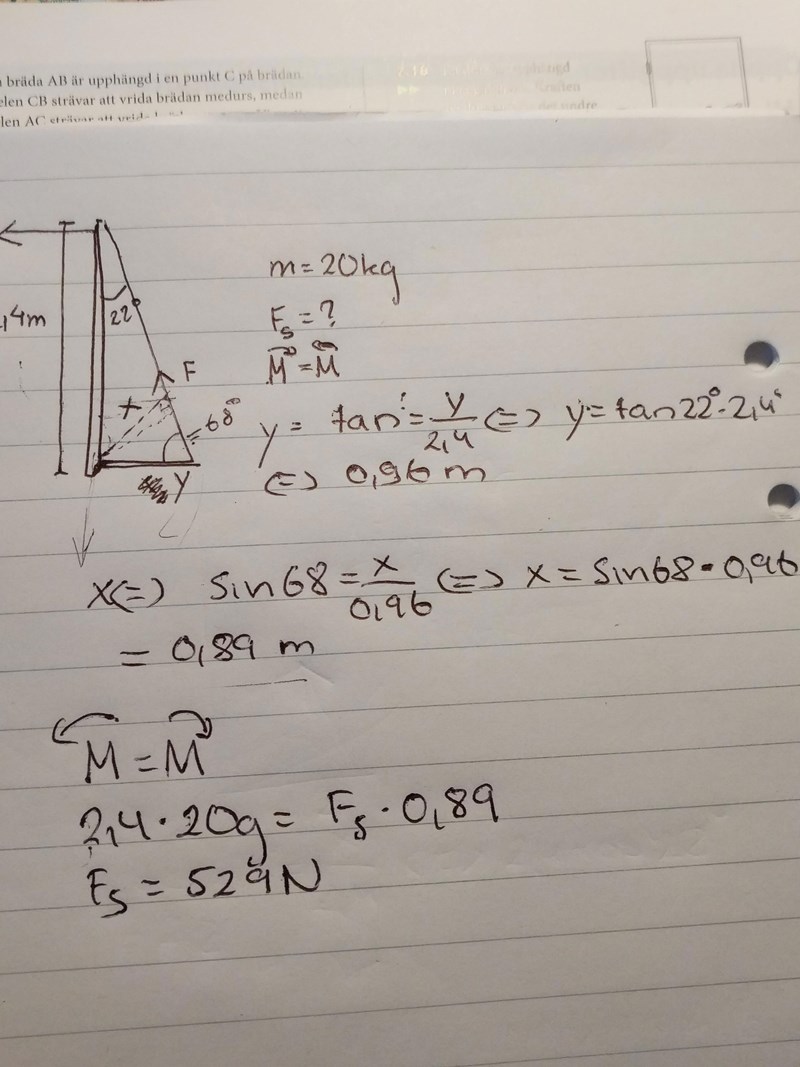 bräda AB är upphängd i en punkt C på brädan.
elen CB strävar att vrida brädan medurs, medan
len AC strävar att vrida
,4m
22°
F
x
68°
y
m = 20kg
Fs = ?
M = M
y = tan = y/2,4 <=> y = tan 22° · 2,4
<=> 0,96 m
x <=> sin 68 = x/0,96 <=> x = sin 68 · 0,96
= 0,89 m
M = M
2,4 · 20g = Fs · 0,89
Fs = 529 N